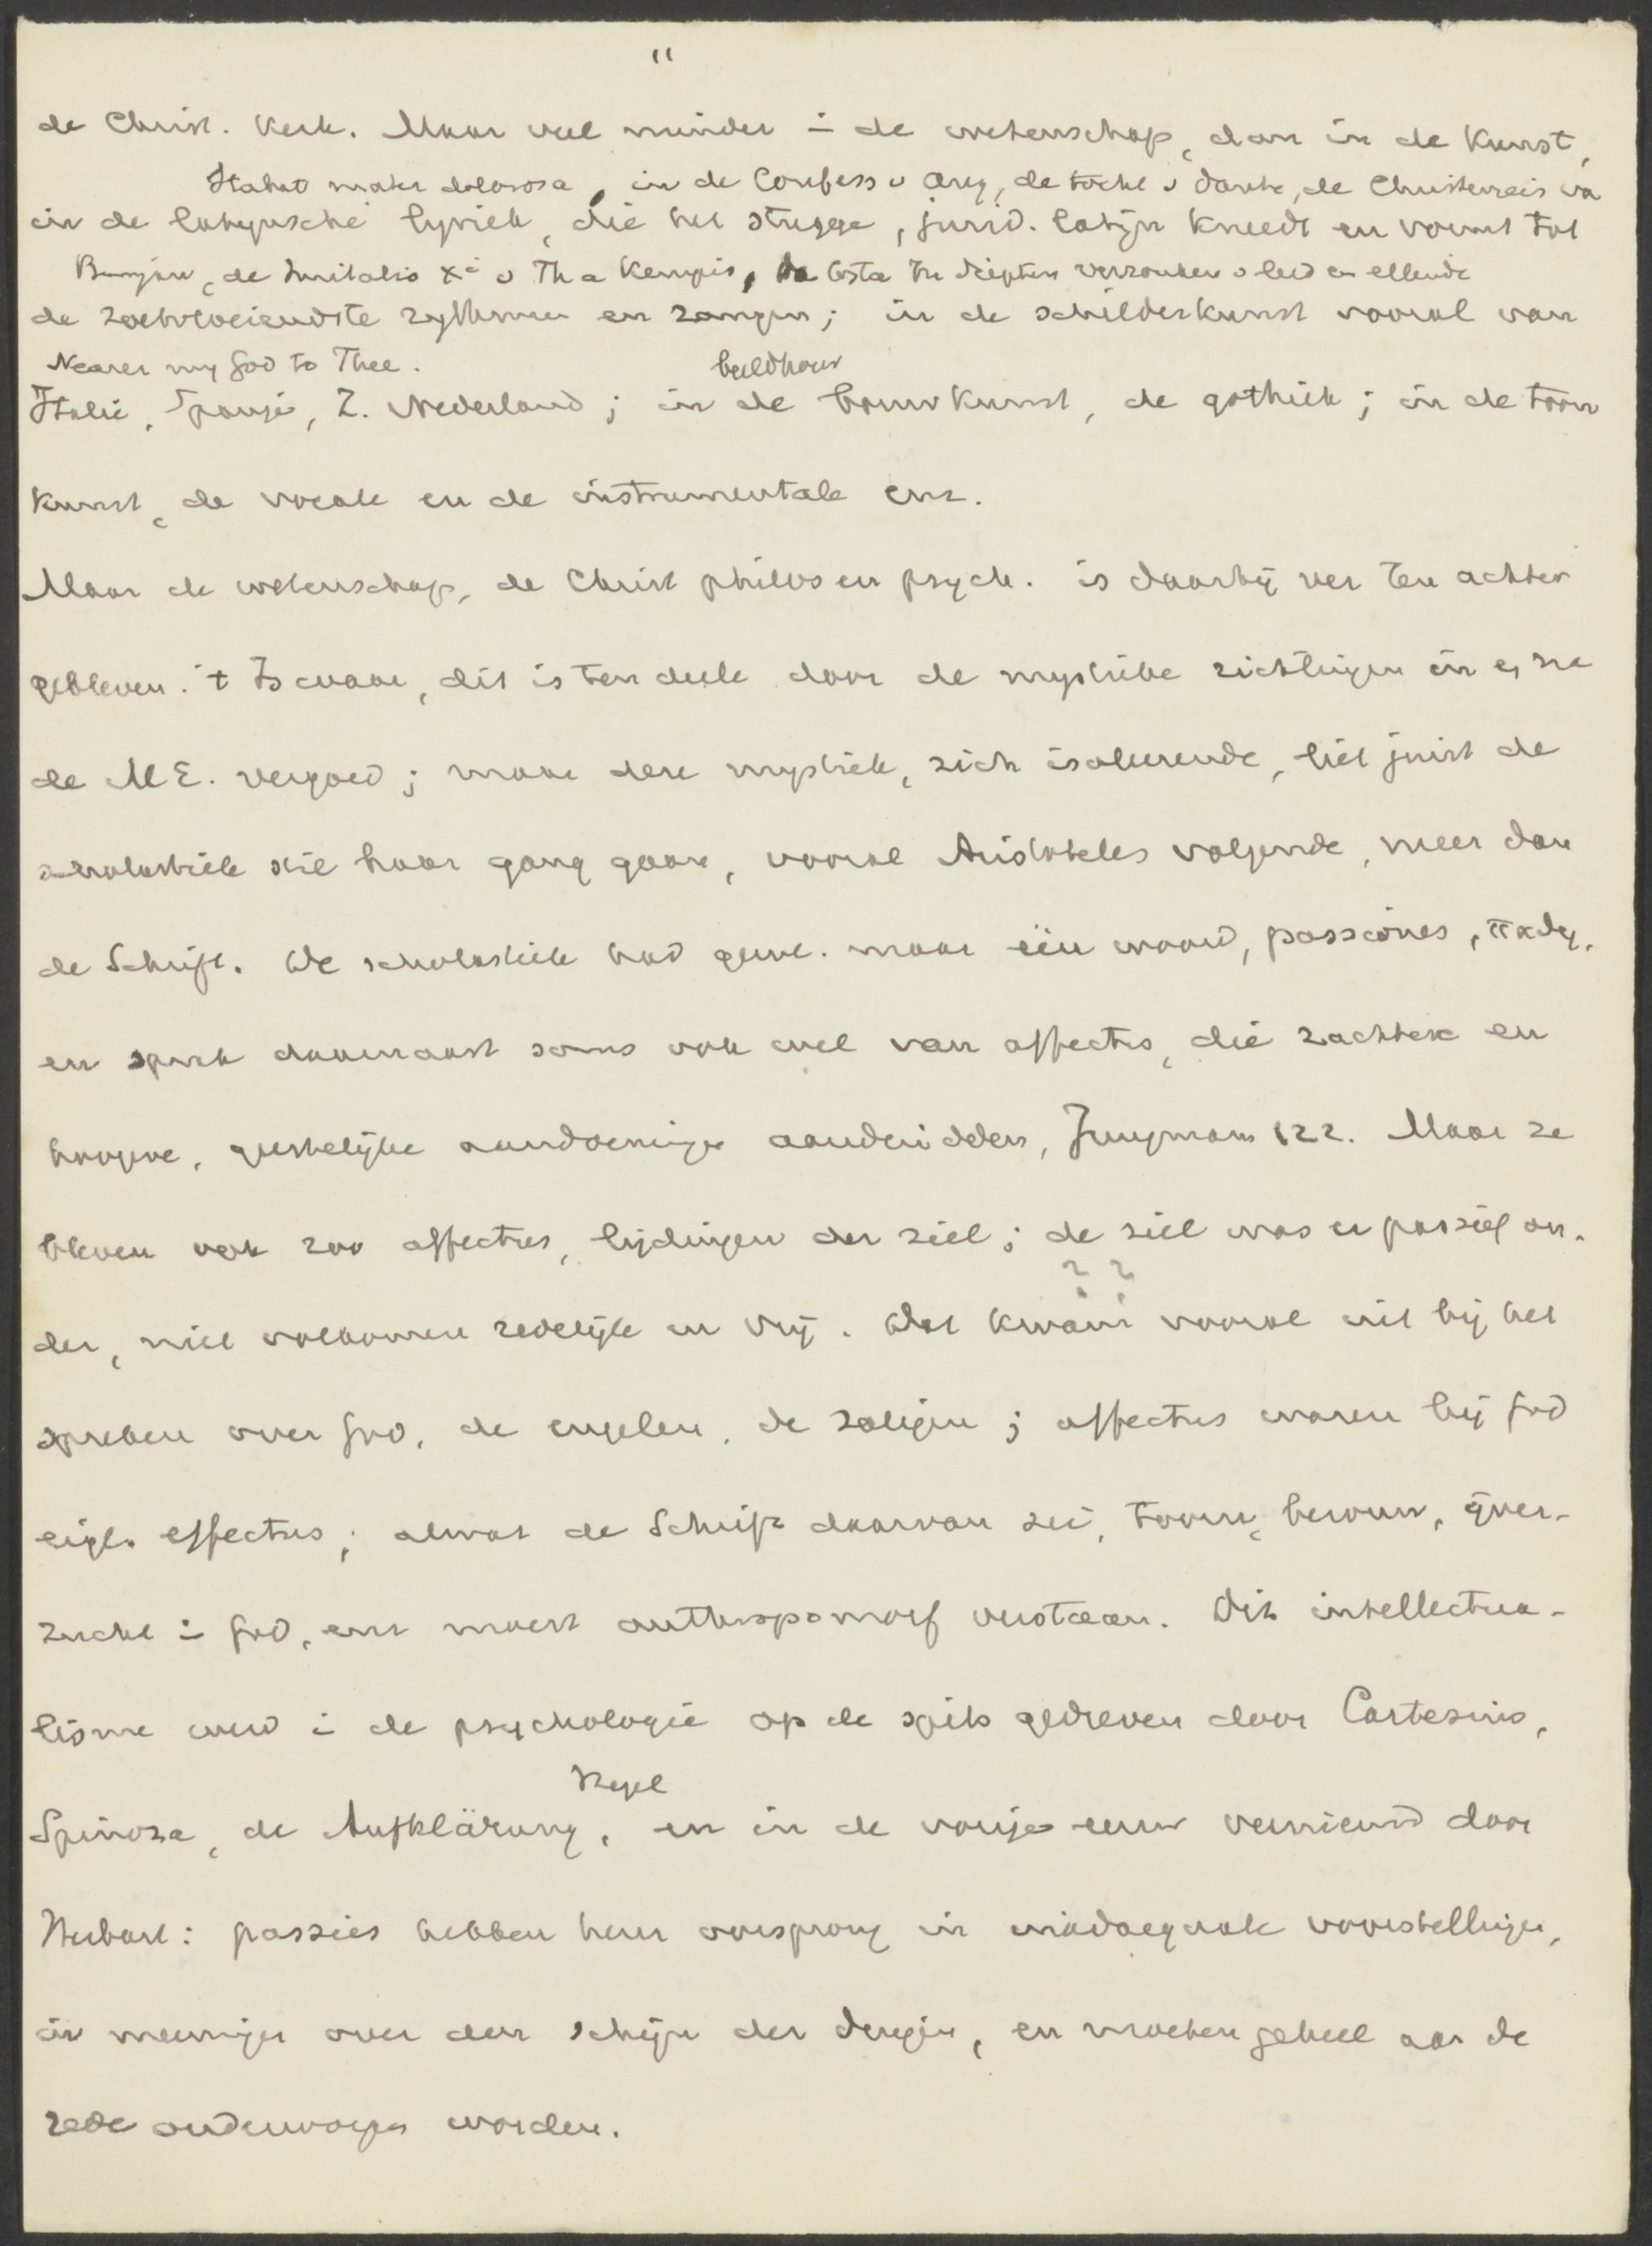 11
de Christ. Kerk. Maar veel minder i de wetenschap, dan in de Kunst,
Stabat mater dolorosa, in de Confess v Aug, de tocht v Dante, de Christenreis va
in de latijnsche lyriek, die het stugge, jurid. latijn kneedt en vormt tot
Bunjan, de Imitatio Xi v Th a Kempis, da Costa In diepten verzonken v leed en ellende
de zoetvloeiendste rythmen en zangen; in de schilderkunst vooral van
Nearer my God to Thee.
beeldhouw
Italië, Spanje, Z. Nederland; in de bouwkunst, de gothiek; in de toon
kunst, de vocale en de instrumentale enz.
Maar de wetenschap, de Christ philos en psych. is daarbij ver ten achter
gebleven. 't Is waar, dit is ten deele door de mystieke richtingen in en na
de ME. vergoed; maar deze mystiek, zich isoleerende, liet juist de
scholastiek stil haar gang gaan, vooral Aristoteles volgende, meer dan
de Schrift. De scholastiek had gew. maar één woord, passiones, παθη,
en sprak daarnaast soms ook wel van affectus, die zachtere en
hoogere, geestelijke aandoeningen aanduidden, Jungmann 122. Maar ze
bleven ook zoo affectus, lijdingen der ziel; de ziel was er passief on-
? ?
der, niet volkomen redelijk en vrij. Dat kwam vooral uit bij het
spreken over God, de engelen, de zaligen; affectus waren bij God
eigl. effectus; alwat de Schrift daarvan zei, toorn, berouw, ijver-
zucht i God, enz moest anthropomorf verstaan. Dit intellectua-
lisme werd i de psychologie op de spits gedreven door Cartesius,
Hegel
Spinoza, de Aufklärung, en in de vorige eeuw vernieuwd door
Herbart: passies hebben hun oorsprong in inadaequate voorstellingen,
in meeningen over den schijn der dingen, en moeten geheel aan de
rede onderworpen worden.